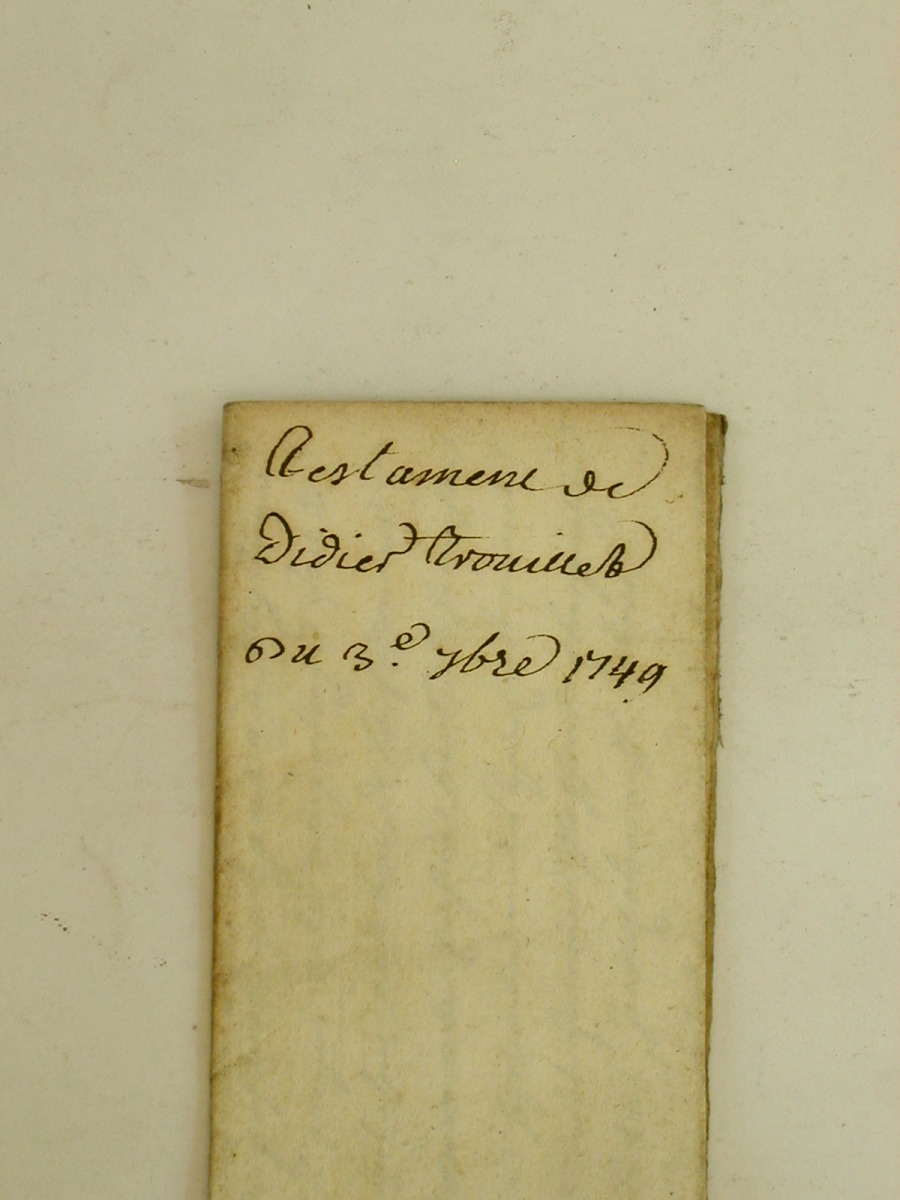 Testament de
Didier Trouillet
Du 3e. 7bre 1749